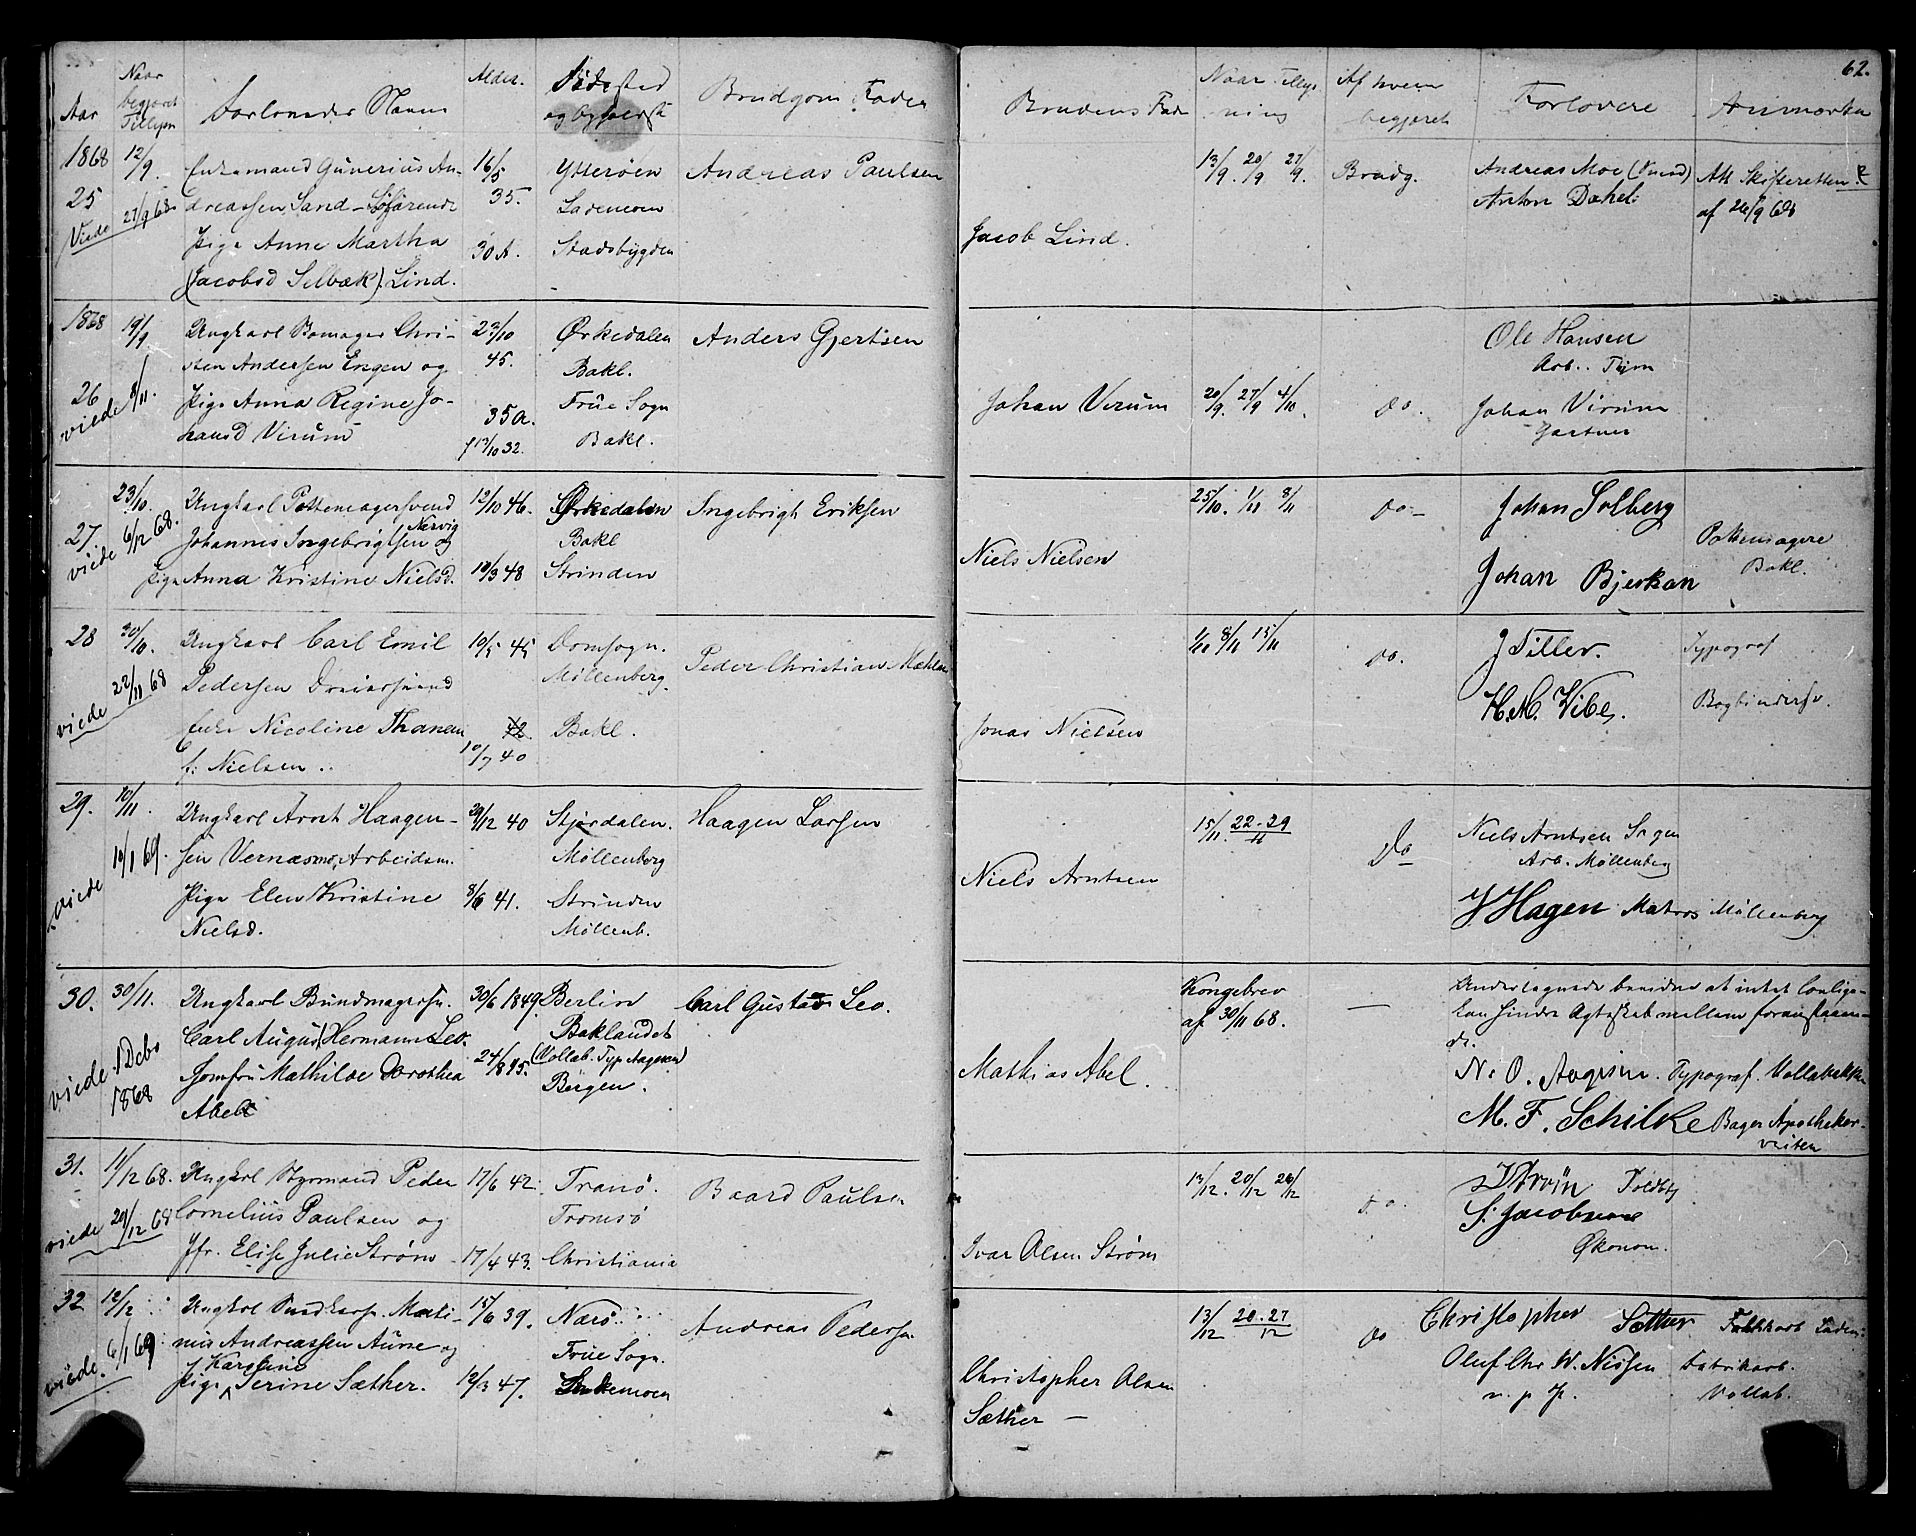 62.
Aar
Naar begjæret Tillysn
Forlovedes Navne
Alder.
Fødested og Opholdst
Brudgom Fader
Brudens Fader
Naar Tillysning
Af hvem begjæret
Forlovere
Anmærkn
1868 12/9. Enkemand Gunerius An- 16/5 Ytterøen Andreas Paulsen 13/9. 20/9 27/9. Brudg. Andreas Moe (Vused)
25 27/9 68. dreassen Sand - Søfarende 35. Lademoen Anton Dahl: Att Skifteretten
Viede Pige Anne Martha 30 A. Stadsbygden Jacob Lind. af 26/9 68
(Jacobsd Selbæk). Lind.
1868 19/9 Ungkarl Bomager Chri- 23/10 Ørkedalen Anders Gjertsen Ole Hansen
sten Andersen Engen og 45. Bakl. Arb.. Tijm
26 viede 8/11. Pige Anna Regine Jo- 35 a. Frue Sogn Johan Virum 20/9. 27/9 4/10. do. Johan Virum
hansd Virum f 13/10 32. Bakl. Gartner
23/10. Ungkarl Pottemagersvend 12/10 46. Ørkedalen Ingebrigt Eriksen 25/10. 1/11 8/11 do - Johan Solberg
27. viede 6/12 68. Johannes Ingebrigtsen Nervig og Bakl Niels Nielsen Pottemagere
Pige Anna Kristine Nielsd. 10/3 48 Strinden Johan Bjerkan Bakl.
28 30/10. Ungkarl Carl Emil 10/5 45 Domsogn. Peder Christian Mæhlen 1/11 8/11 15/11 do. J Tiller. Typograf
viede 22/11 68 Pedersen Dreiersvend Møllenberg. H. M. Vibe. Bogbindersv.
Enke Nicoline Thanem 42 Bakl. Jonas Nielsen
f: Nielsen .. 10/7 40
29. 10/11. Ungkarl Arnt Haagen- 29/12 40 Stjørdalen. Haagen Larsen 15/11. 22-29/11 Do Niels Arntsen
viede 10/1 69. sen Vernæsmo, Arbeidsm. Møllenberg Arb. Møllenberg
Pige Elen Kristine 8/6 41. Strinden Niels Arntsen J Hagen Matros Møllenberg
Nielsd. Møllenb.
30. 30/11. Ungkarl Bundmagersv. 30/6 1849. Berlin Carl Gustav Leo. Kongebrev — Undertegnede bevidne at intet lovlige-
Carl August Hermann Leo. Baklandet af 30/11 68. kan hindre Ægteskab mellem foranstaaen-
viede 1 Debr 1868 Jomfru Mathilde Dorothea 24/8 45. (Vollab. Typ Aagesen) Mathias Abel. de.
Abel Bergen. N. O. Aagesen. Typograf. Vollabakken
M. F. Schilke Bager Apotheker-
veiten
31. 11/12 68. Ungkarl Styrmand Peder 17/6 42. Tranø. Baard Paulsen 13/12. 20/12 26/12 do. Toldbtj
viede 29/12 68 Cornelius Paulsen og Tromsø S. Jacobsen
Jfr. Elise Julie Strøm 17/4 43. Christiania Ivar Olsen Strøm Økonom.
32 12/12 Ungkarl Marti- 15/6 39. Nærø. Andreas Pedersen 13/12 20-27/12 do Christopher Sæther Fabrikarb Laden:
viede. 6/1 69 nus Andreassen Aune og Frue Sogn. Oluf Chr W. Nissen Fabrikarb.
Pige Karoline Serine Sæther. 12/3 47. Lademoen Christopher Olsen m. p. P. Vollab.
Sæther —